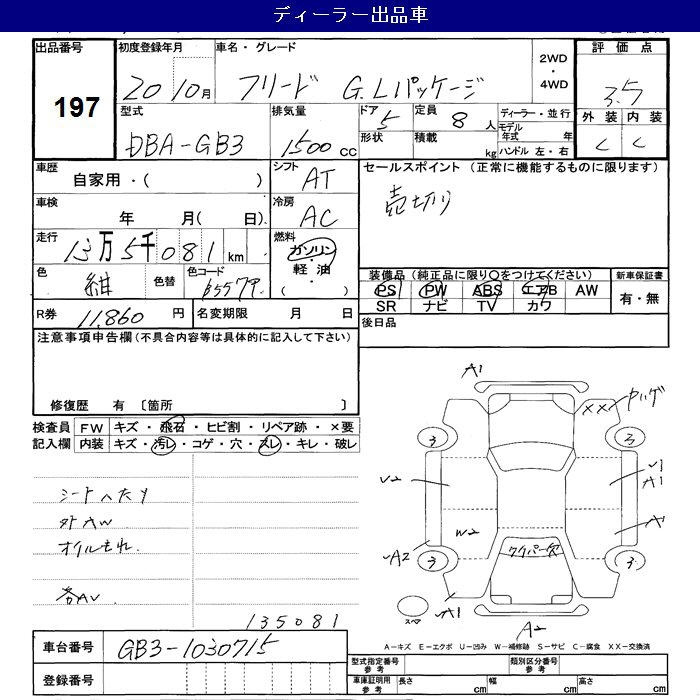 ディーラー出品車
出品番号 197
初度登録年月 20 10月
車名・グレード フリード G.Lパッケージ
2WD・4WD
評価点 3.5
外装 C 内装 C
型式 DBA-GB3
排気量 1500 CC
ドア 5 形状
定員 8人 積載 kg
ディーラー・並行
モデル年式 年
ハンドル 左・右
車歴 自家用・( )
シフト AT
セールスポイント (正常に機能するものに限ります)
売切り
車検 年 月( 日)
冷房 AC
走行 13万5千081 km
燃料 ガソリン・軽油・( )
色 紺 色替 色コード B557P
装備品 (純正品に限り○をつけてください)
PS PW ABS エアB AW
SR ナビ TV カワ
新車保証書 有・無
R券 11,860 円 名変期限 月 日
後日品
注意事項申告欄 (不具合内容等は具体的に記入して下さい)
修復歴 有 〔箇所 〕
検査員記入欄
FW キズ・飛石・ヒビ割・リペア跡・×要
内装 キズ・汚レ・コゲ・穴・スレ・キレ・破レ
シートヘたり
外AW
オイルもれ
各AU
135081
A1
XX ヤハゲ
3
3
U2
U1
A1
W2
A
ワイパー欠
A2
3
3
スペア
A1
A2
A-キズ E-エクボ U-凹み W-補修跡 S-サビ C-腐食 XX-交換済
車台番号 GB3-1030715
登録番号
型式指定番号 参考 類別区分番号 参考
車庫証明用 参考 長さ cm 幅 cm 高さ cm